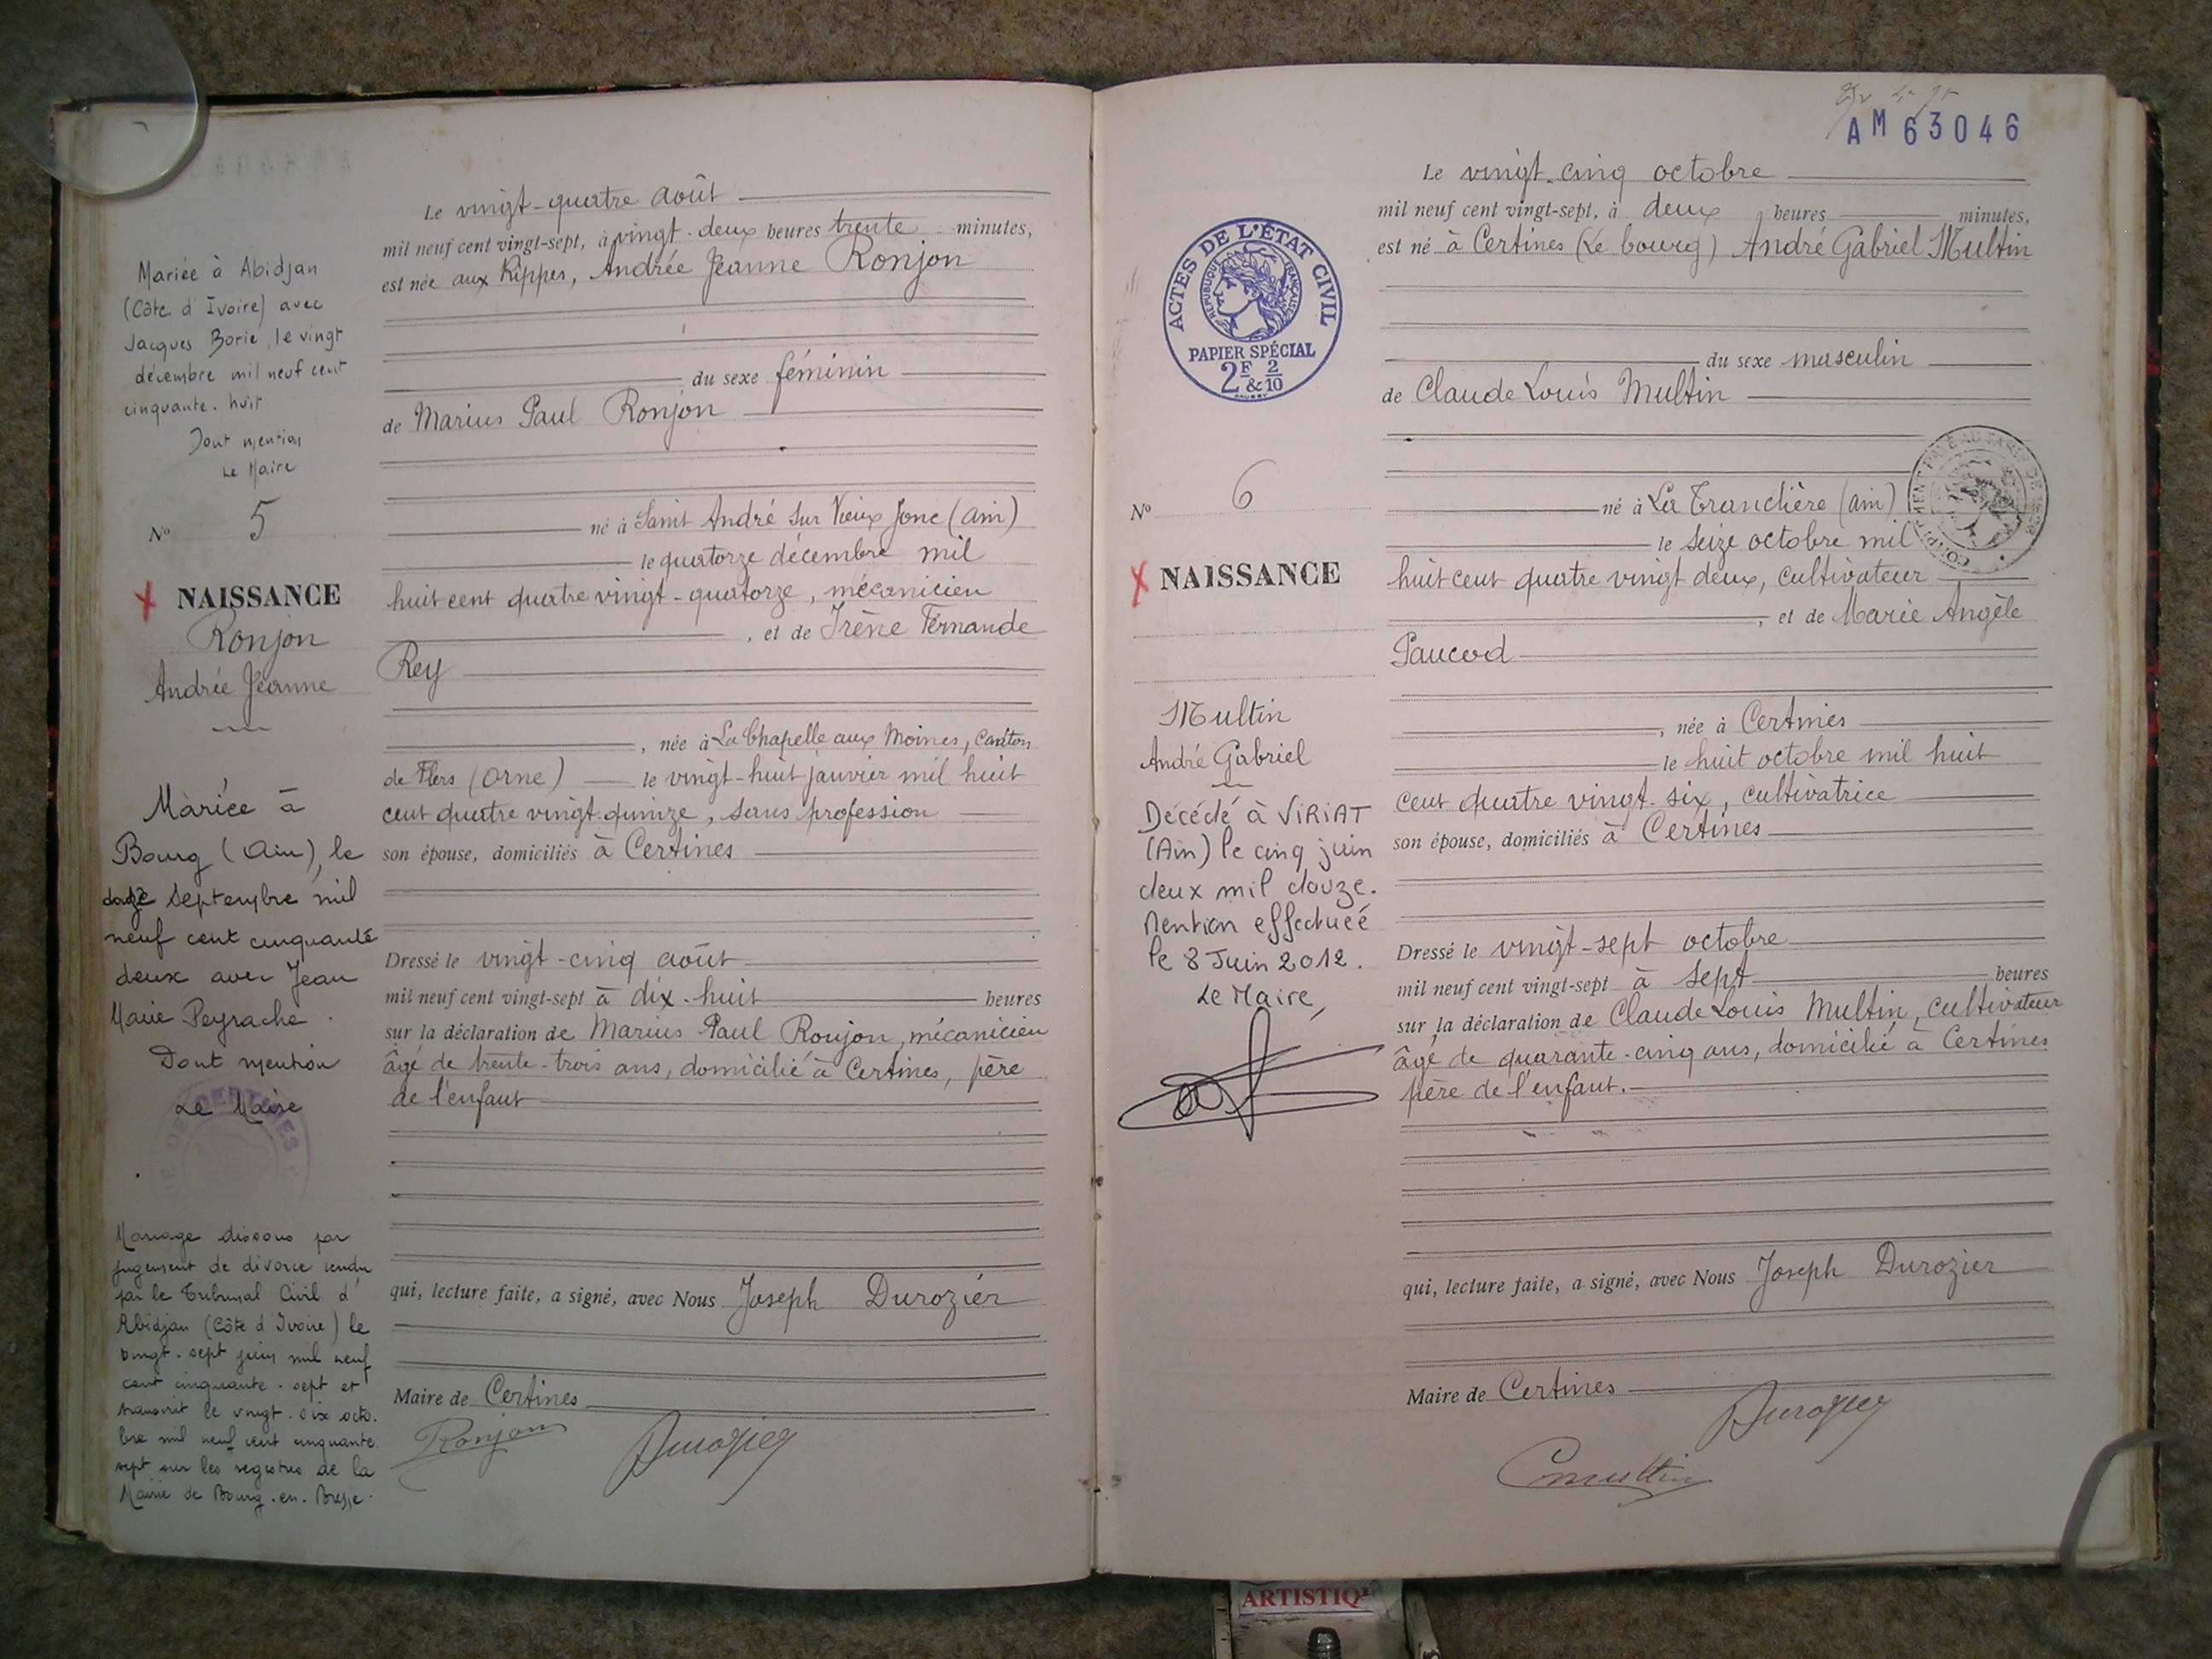 Mariée à Abidjan
(Côte d'Ivoire) avec
Jacques Borie, le vingt
décembre mil neuf cent
cinquante-huit
Dont mention
Le Maire
N° 5
NAISSANCE
Ronjon
Andrée Jeanne
Mariée à
Bourg (Ain), le
douze septembre mil
neuf cent cinquante
deux avec Jean
Marie Peyrache.
Dont mention
Le Maire
Mariage dissous par
jugement de divorce rendu
par le Tribunal Civil d'
Abidjan (Côte d'Ivoire) le
vingt-sept juin mil neuf
cent cinquante-sept et
transcrit le vingt-six octo-
bre mil neuf cent cinquante-
sept sur les registres de la
Mairie de Bourg-en-Bresse.
Le vingt-quatre août
mil neuf cent vingt-sept, à vingt-deux heures trente minutes,
est née aux Rippes, Andrée Jeanne Ronjon
du sexe féminin
de Marius Paul Ronjon
né à Saint André sur Vieux Jonc (Ain)
le quatorze décembre mil
huit cent quatre vingt-quatorze, mécanicien
, et de Irène Fernande
Rey
, née à La Chapelle aux Moines, canton
de Flers (Orne) le vingt-huit janvier mil huit
cent quatre vingt-quinze, sans profession
son épouse, domiciliés à Certines
Dressé le vingt-cinq août
mil neuf cent vingt-sept à dix-huit heures
sur la déclaration de Marius Paul Ronjon, mécanicien
âgé de trente-trois ans, domicilié à Certines, père
de l'enfant
qui, lecture faite, a signé, avec Nous Joseph Durozier
Maire de Certines
Ronjon Durozier
AM 63046
ACTES DE L'ÉTAT CIVIL
RÉPUBLIQUE FRANÇAISE
PAPIER SPÉCIAL
2F & 2/10
N° 6
NAISSANCE
Multin
André Gabriel
Décédé à VIRIAT
(Ain) le cinq juin
deux mil douze.
Mention effectuée
le 8 Juin 2012.
Le Maire,
Le vingt-cinq octobre
mil neuf cent vingt-sept, à deux heures minutes,
est né à Certines (Le bourg) André Gabriel Multin
du sexe masculin
de Claude Louis Multin
né à La Tranclière (Ain)
le seize octobre mil
huit cent quatre vingt deux, cultivateur
, et de Marie Angèle
Paucod
, née à Certines
le huit octobre mil huit
cent quatre vingt-six, cultivatrice
son épouse, domiciliés à Certines
Dressé le vingt-sept octobre
mil neuf cent vingt-sept à sept heures
sur la déclaration de Claude Louis Multin, cultivateur
âgé de quarante-cinq ans, domicilié à Certines
père de l'enfant.
qui, lecture faite, a signé, avec Nous Joseph Durozier
Maire de Certines
Durozier
Cmultin
ARTISTIQ